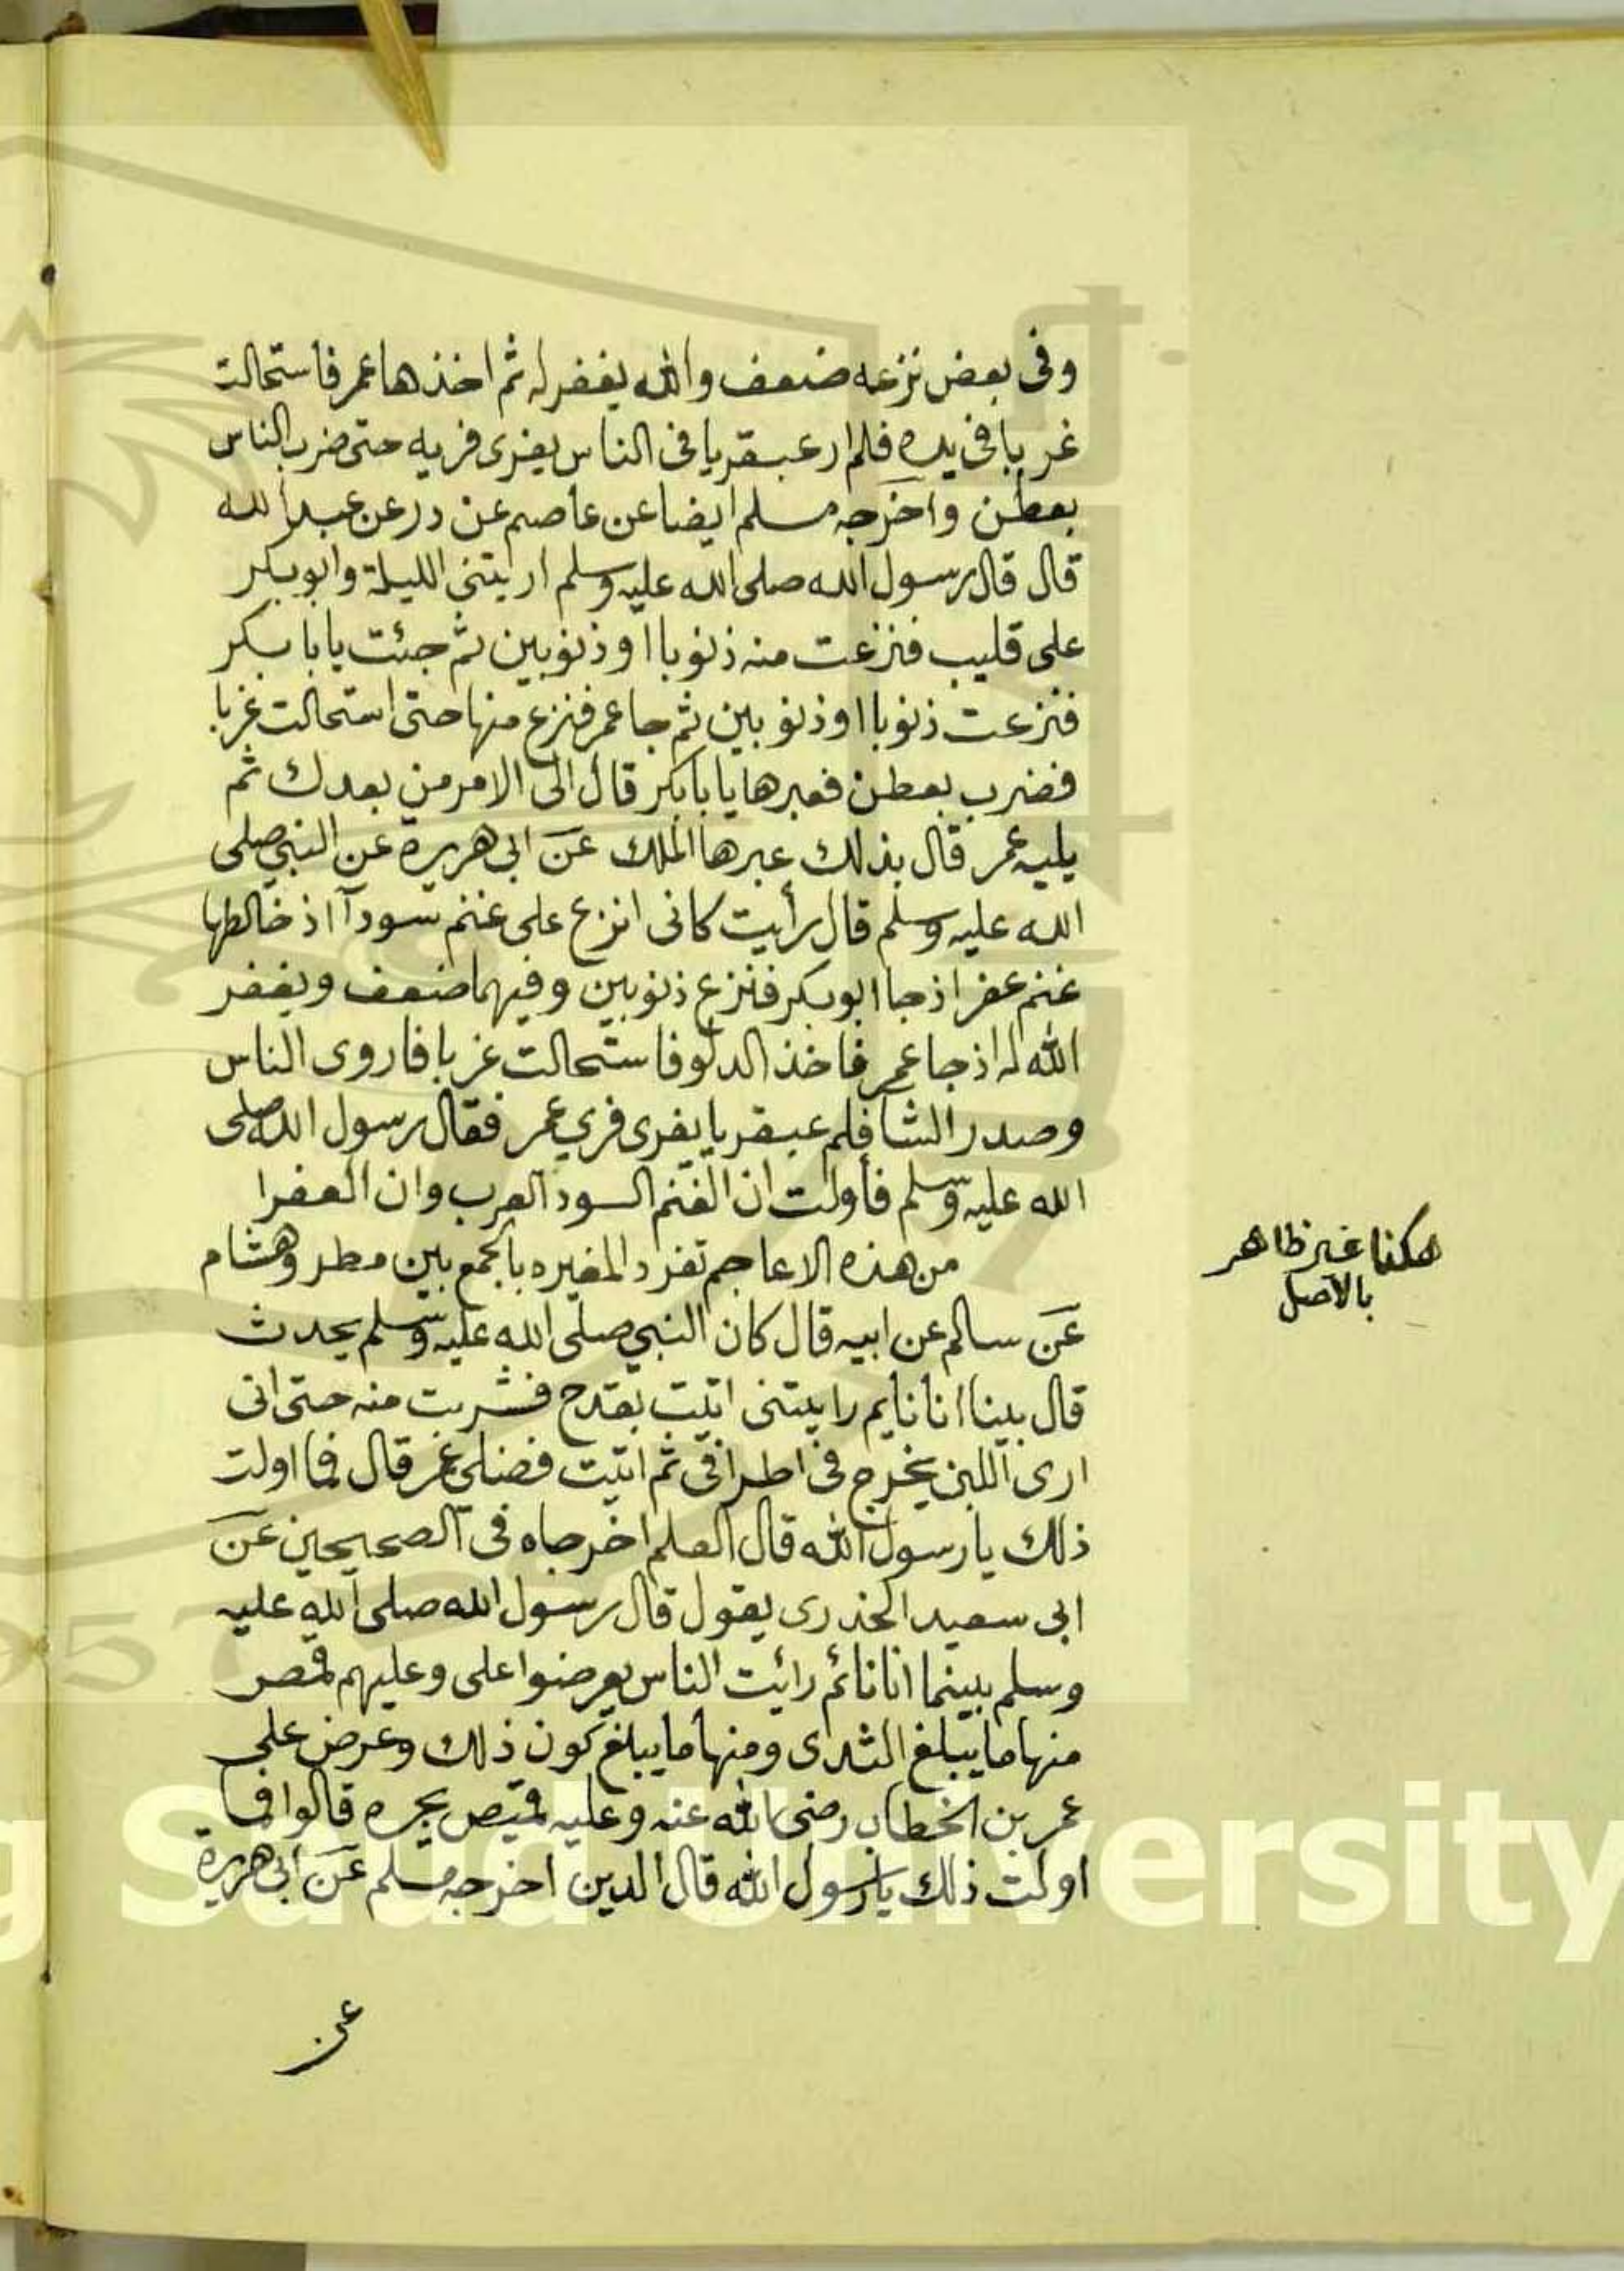 وفى بعض نزعه ضعف والله يغفر له ثم اخذها عمر فاستحالت
غربا فى يده فلم ار عبقريا فى الناس يفرى فريه حتى ضرب الناس
بعطن واخرجه مسلم ايضا عن عاصم عن درعن عبد الله
قال قال رسول الله صلى الله عليه وسلم اريتنى الليلة وابو بكر
على قليب فنزعت منه ذنوبا او ذنوبين ثم جئت يابا بكر
فنزعت ذنوبا او ذنوبين ثم جا عمر فنزع منها حتى استحالت غربا
فضرب بعطن فعبرها يابا بكر قال الى الامر من بعدك ثم
يليه عمر قال بذلك عبرها الملك عن ابى هريرة عن النبي صلى
الله عليه وسلم قال رأيت كانى انزع على غنم سوداآ اذ خالطها
غنم عفر اذ جا ابو بكر فنزع ذنوبين وفيهما ضعف ويغفر
الله له اذ جا عمر فاخذ الدلو فاستحالت غربا فاروى الناس
وصدر الشا فلم عبقريا يفرى فري عمر فقال رسول الله صلى
الله عليه وسلم فأولت ان الغنم السود العرب وان العفرا
من هذه الاعاجم تفرد المغيره بالجمع بين مطر وهشام
هكذا غير ظاهر
بالاصل
عن سالم عن ابيه قال كان النبي صلى الله عليه وسلم يحدث
قال بينا انا نايم رايتنى اتيت بقدح فشربت منه حتى انى
ارى اللبن يخرج فى اطرافى ثم اتيت فضلى عمر قال فما اولت
ذلك يا رسول الله قال العلم اخرجاه فى الصحيحين عن
ابى سعيد الخدرى يقول قال رسول الله صلى الله عليه
وسلم بينما انا نائم رائت الناس يعرضوا على وعليهم قمصر
منها ما يبلغ الثدى ومنها ما يبلغ كون ذلك وعرض على
عمر بن الخطاب رضى الله عنه وعليه قميص يجره قالوا فما
اولت ذلك يا رسول الله قال الدين اخرجه مسلم عن ابى هريرة
عن
g Saud University